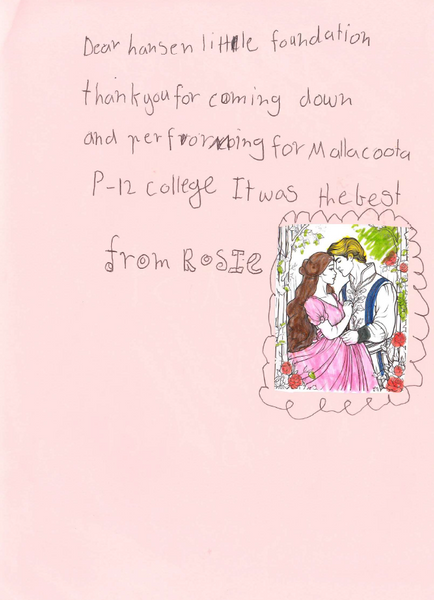 Dear hansen little foundation
thankyou for coming down
and performing for Mallacoota
P-12 college It was the best
from ROSIE